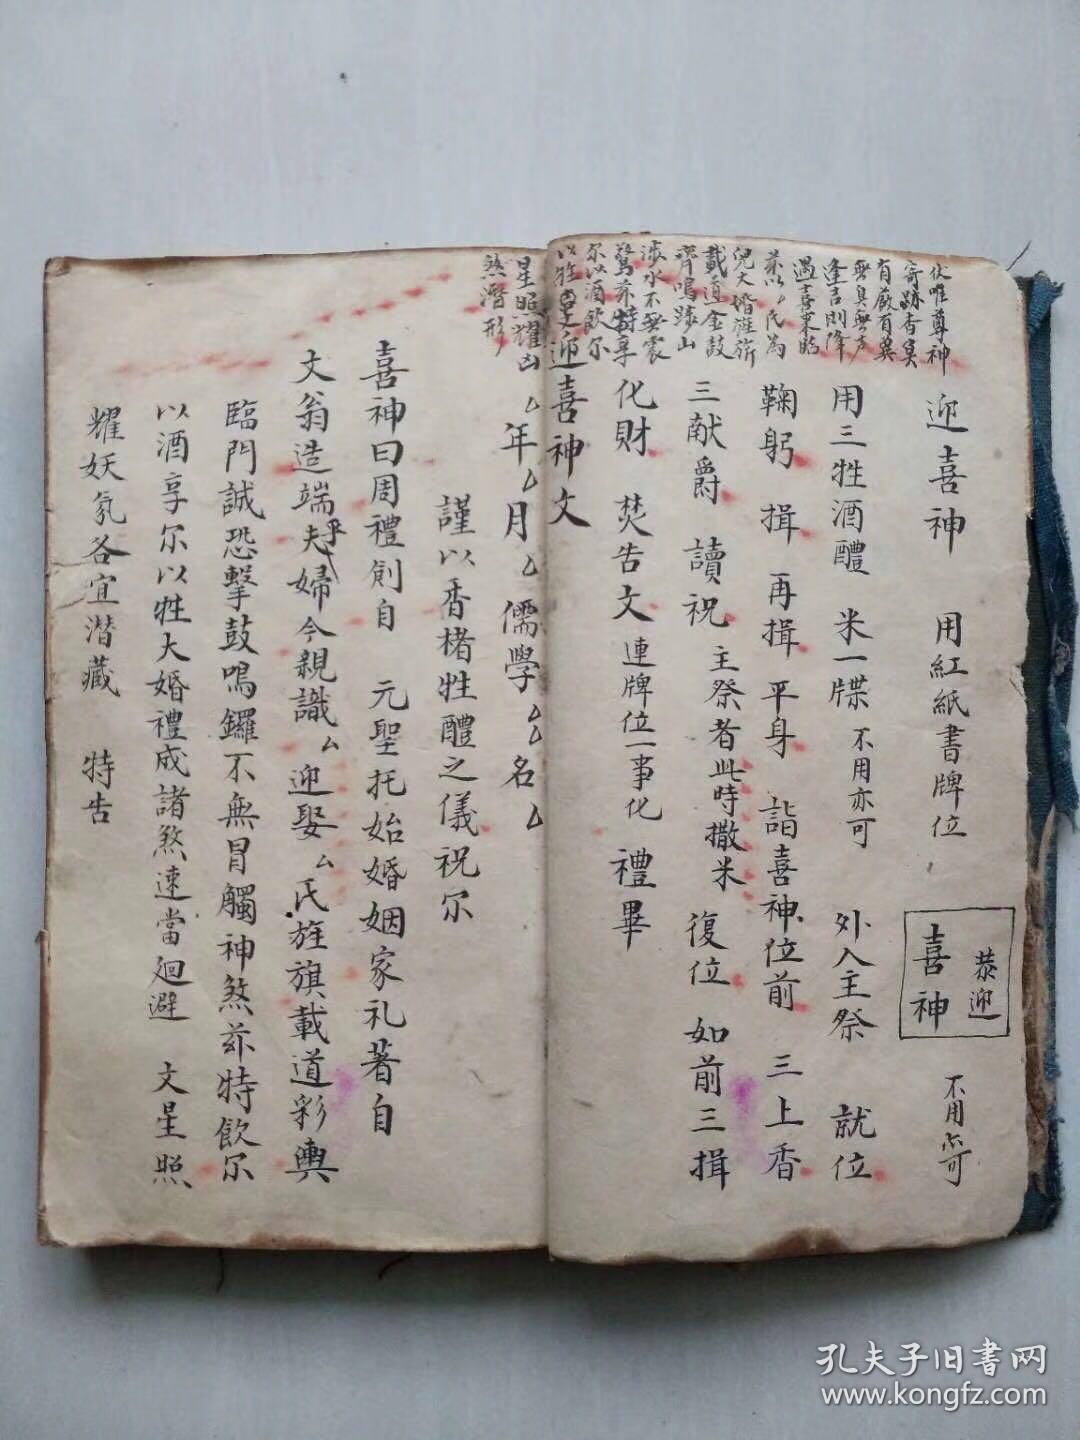 伏唯尊神
寄跡香臭
有嚴有翼
無臭無聲
逢吉則降
遇喜來
茲以厶氏為
兒大婚旌旂
載道金鼓
齊鳴踄山
涉水不無震
驚茲特享
尔以酒飲尔
以牲
星照耀凶
煞潛形
迎喜神 用紅紙書牌位 恭迎喜神 不用亦可
用三牲酒醴 米一牒 不用亦可 外入主祭 就位
鞠躬 揖 再揖 平身 詣喜神位前 三上香
三献爵 讀祝 主祭者此時撒米 復位 如前三揖
化財 焚告文 連牌位一事化 禮畢
迎喜神文
厶年厶月厶儒學厶厶名厶
謹以香楮牲醴之儀祝尔
喜神曰周禮創自 元聖托始婚姻家礼著自
文翁造端乎夫婦今親識厶迎娶厶氏旌旗載道彩輿
臨門誠恐擊鼓鳴鑼不無冒觸神煞茲特飲尔
以酒享尔以牲大婚禮成諸煞速當迴避 文星照
耀妖氛各宜潛藏 特告
孔夫子旧書网
www.kongfz.com